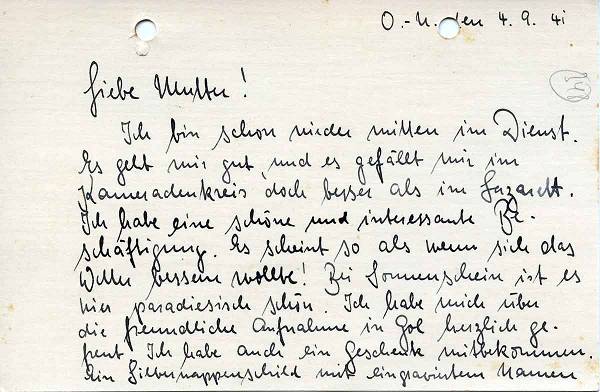 O.-U. den 4. 9. 41
141
Liebe Mutter!
Ich bin schon wieder mitten im Dienst.
Es geht mir gut, und es gefällt mir im
Kameradenkreis doch besser als im Lazarett.
Ich habe eine schöne und interessante Be-
schäftigung. Es scheint so als wenn sich das
Wetter bessern wollte! Bei Sonnenschein ist es
hier paradiesisch schön. Ich habe mich über
die freundliche Aufnahme in Gol herzlich ge-
freut. Ich habe auch ein Geschenk mitbekommen.
Ein Silberwappenschild mit eingraviertem Namen